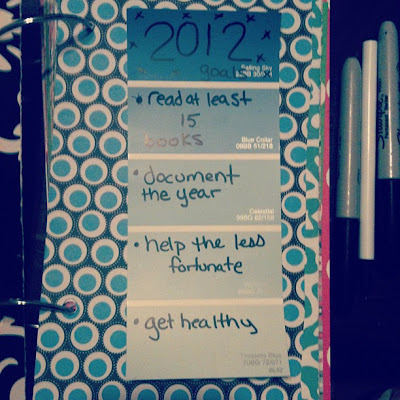 2012
goals
Sailing Sky
• read at least
15
books
Blue Collar
09BB 51/218
• document
the year
Celestial
99BG 62/159
• help the less
fortunate
• get healthy
Timeless Blue
70BG 72/071
Sharpie